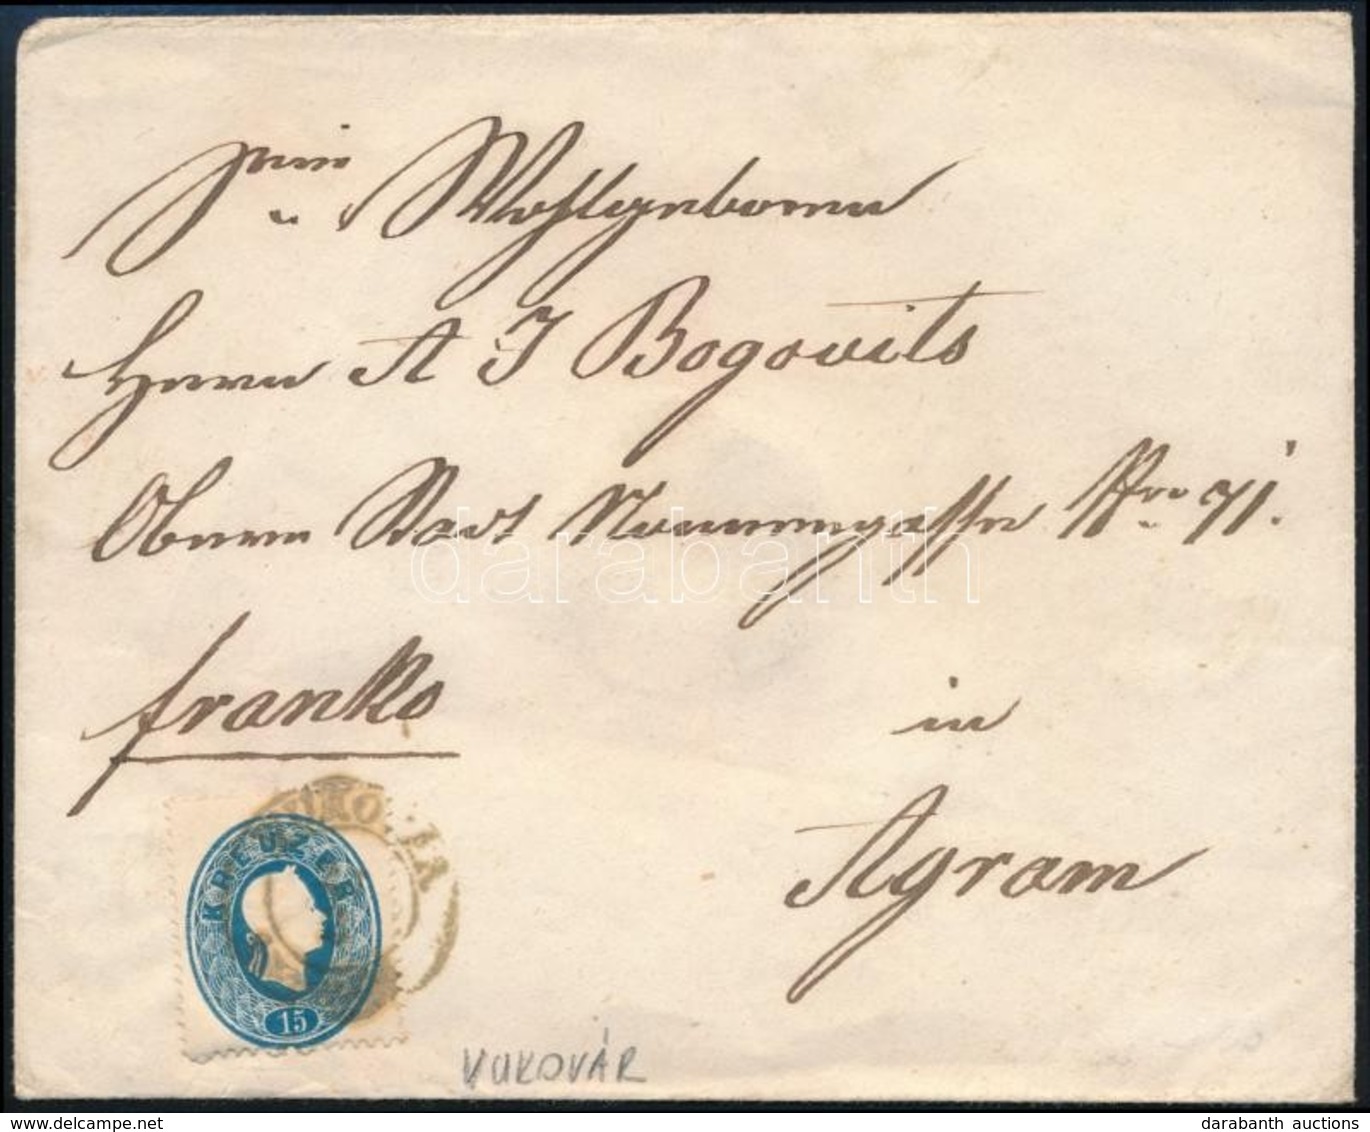 Seine Wohlgeboren
Herrn A J Bogovits
Obere Stadt Nonnengasse Nro 71.
franko
in
Agram
KREUZER
15
VUKOVÁR
darabanth
darabanth auctions